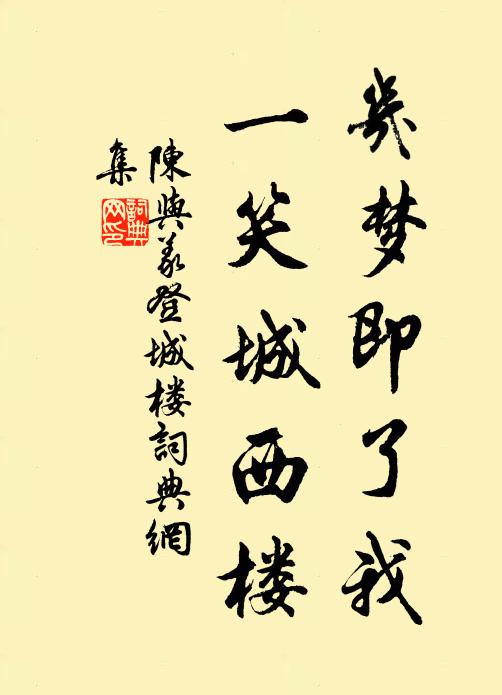 幾梦即了我
一笑城西楼
陳與義登城楼詞典網
集
詞典网印